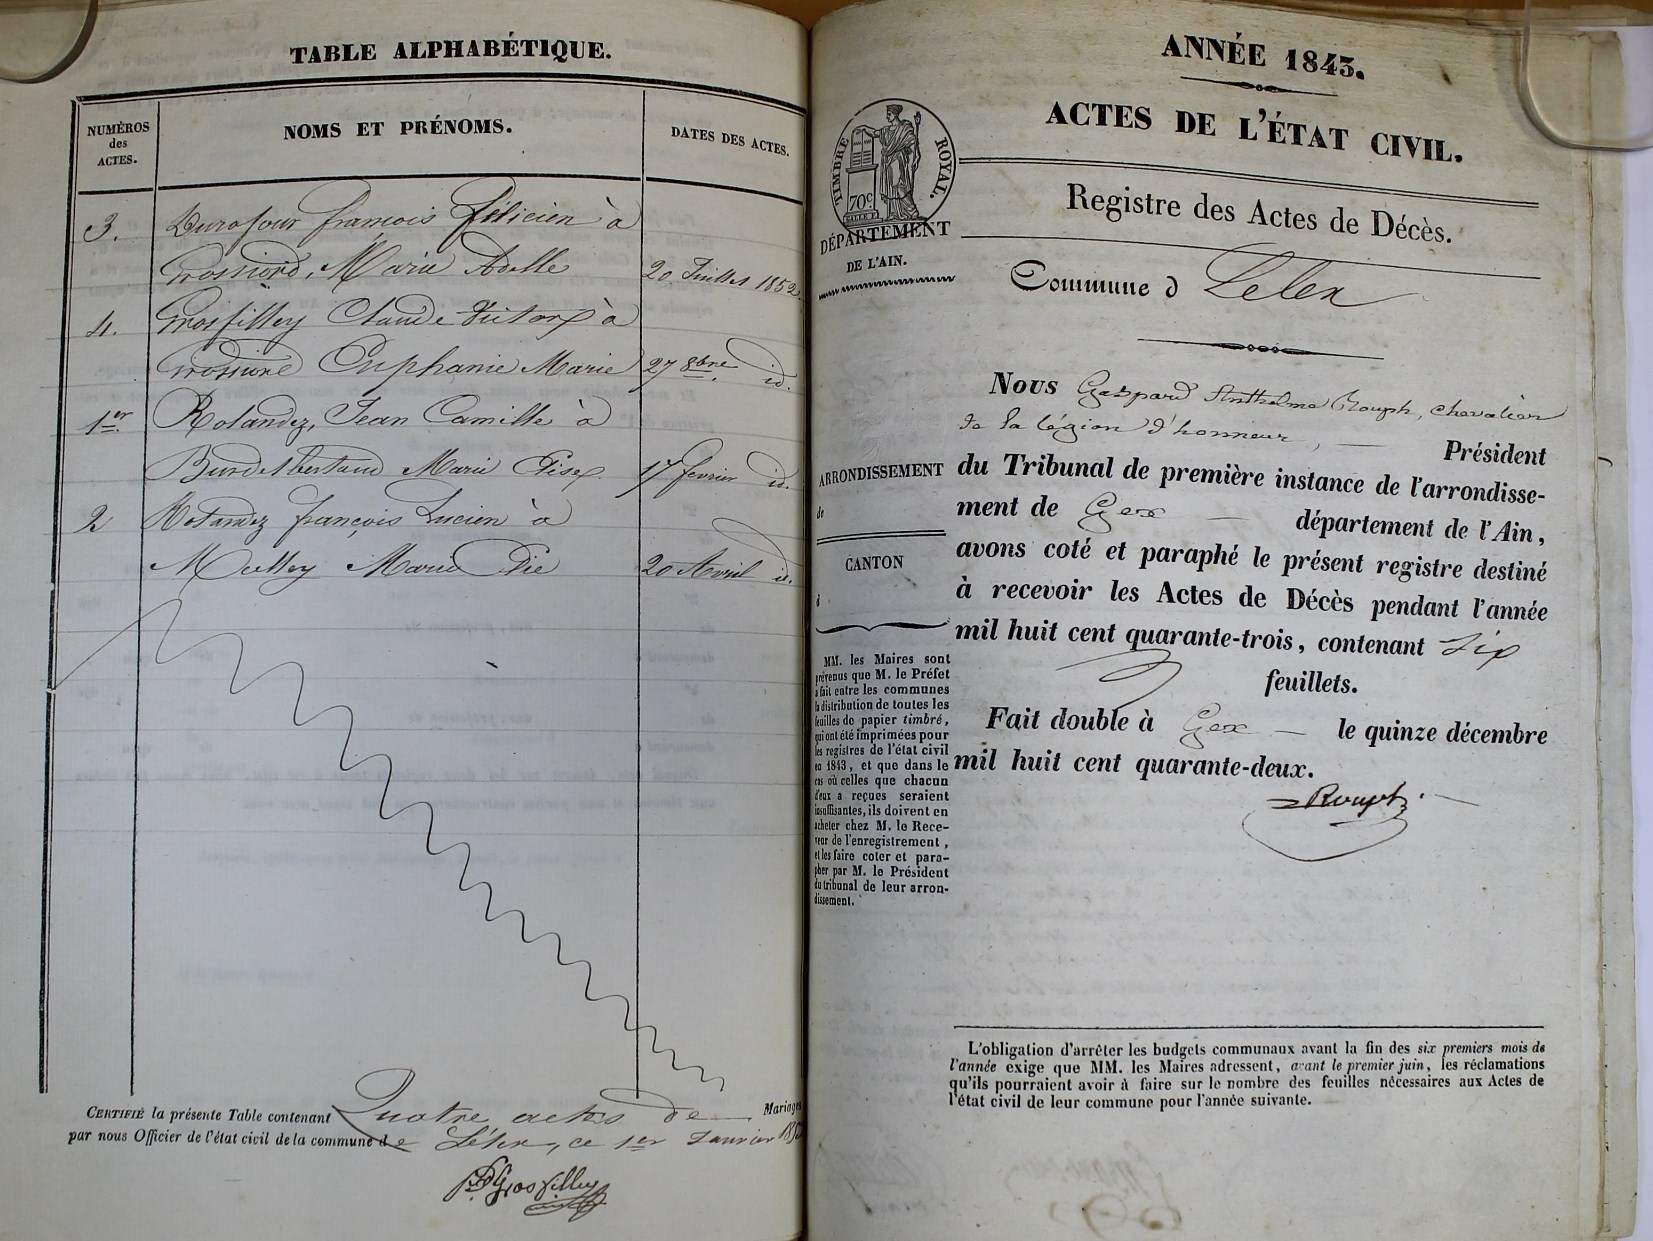 TABLE ALPHABÉTIQUE.
NUMÉROS
des
ACTES.
NOMS ET PRÉNOMS.
DATES DES ACTES.
3. Durafour françois Félicien à
Grossiord, Marie Adelle 20 Juillet 1852
4. Grosfilley Claude Victor à
Grossiord Euphanie Marie 27 8bre id.
1er Rolandez, Jean Camille à
Marie Elise 17 fevrier id.
2 Rolandez françois Lucien à
Marie Pie 20 Avril id.
CERTIFIÉ la présente Table contenant Quatre actes de Mariages
par nous Officier de l'état civil de la commune de Lélex, ce 1er Janvier 1853
Grosfilley
ANNÉE 1843.
ACTES DE L'ÉTAT CIVIL.
TIMBRE ROYAL.
70c.
DÉPARTEMENT
DE L'AIN.
Registre des Actes de Décès.
Commune d Lelex
Nous Gaspard Anthelme Rouph, chevalier
de la légion d'honneur, Président
du Tribunal de première instance de l'arrondisse-
ment de Gex département de l'Ain,
avons coté et paraphé le présent registre destiné
à recevoir les Actes de Décès pendant l'année
mil huit cent quarante-trois, contenant Six
feuillets.
Fait double à Gex le quinze décembre
mil huit cent quarante-deux.
Rouph
ARRONDISSEMENT
de
CANTON
d
MM. les Maires sont
prévenus que M. le Préfet
a fait entre les communes
la distribution de toutes les
feuilles de papier timbré,
qui ont été imprimées pour
les registres de l'état civil
en 1843, et que dans le
cas où celles que chacun
d'eux a reçues seraient
insuffisantes, ils doivent en
acheter chez M. le Rece-
veur de l'enregistrement,
et les faire coter et para-
pher par M. le Président
du tribunal de leur arron-
dissement.
L'obligation d'arrêter les budgets communaux avant la fin des six premiers mois de
l'année exige que MM. les Maires adressent, avant le premier juin, les réclamations
qu'ils pourraient avoir à faire sur le nombre des feuilles nécessaires aux Actes de
l'état civil de leur commune pour l'année suivante.